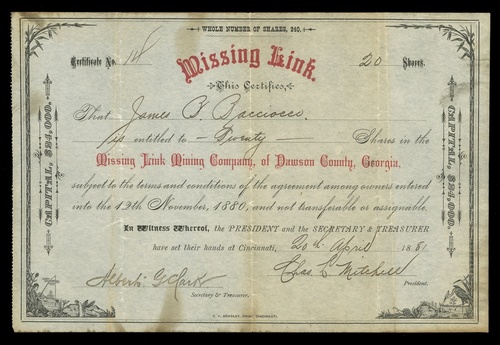 WHOLE NUMBER OF SHARES, 240.
Certificate No. 14 20 Shares.
Missing Link.
This Certifies,
That James B. Bacciocco
is entitled to Twenty Shares in the
Missing Link Mining Company, of Dawson County, Georgia,
subject to the terms and conditions of the agreement among owners entered
into the 12th November, 1880, and not transferable or assignable.
In Witness Whereof, the PRESIDENT and the SECRETARY & TREASURER
have set their hands at Cincinnati, 20th April 1881
Albert G. Clark Chas. L. Mitchell
Secretary & Treasurer. President.
CAPITAL, $24,000.
CAPITAL, $24,000.